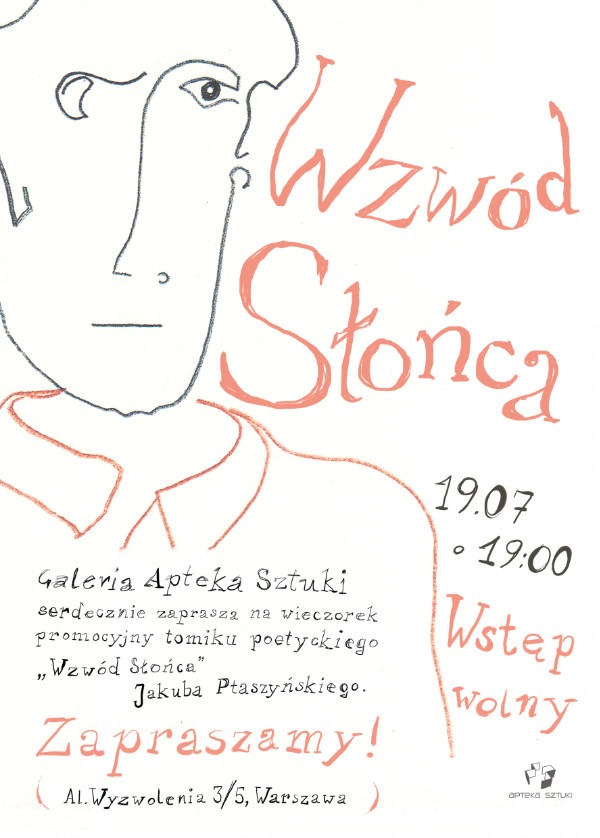 Wzwód
Słońca
19.07
o 19:00
Galeria Apteka Sztuki
serdecznie zaprasza na wieczorek
promocyjny tomiku poetyckiego
„Wzwód Słońca”
Jakuba Ptaszyńskiego.
Wstęp
wolny
Zapraszamy!
( Al. Wyzwolenia 3/5, Warszawa )
APTEKA SZTUKI